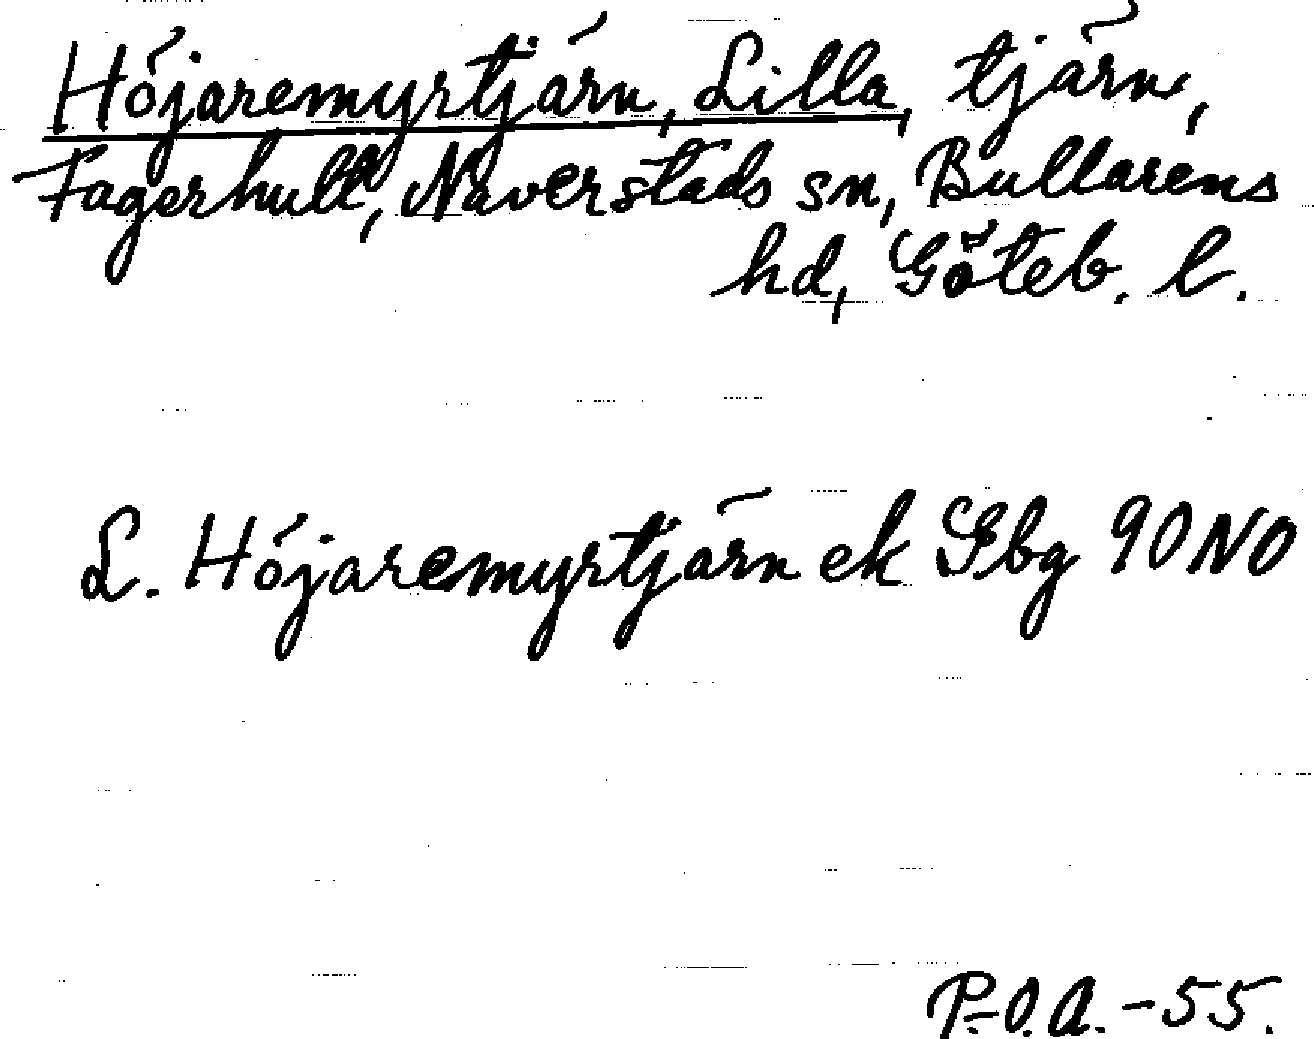 Höjaremyrtjärn, Lilla, tjärn,
Fagerhult, Naverstads sn, Bullarens
hd, Göteb. l.
L. Höjaremyrtjärn ek Gbg 90 NO
P.-O.A. -55.